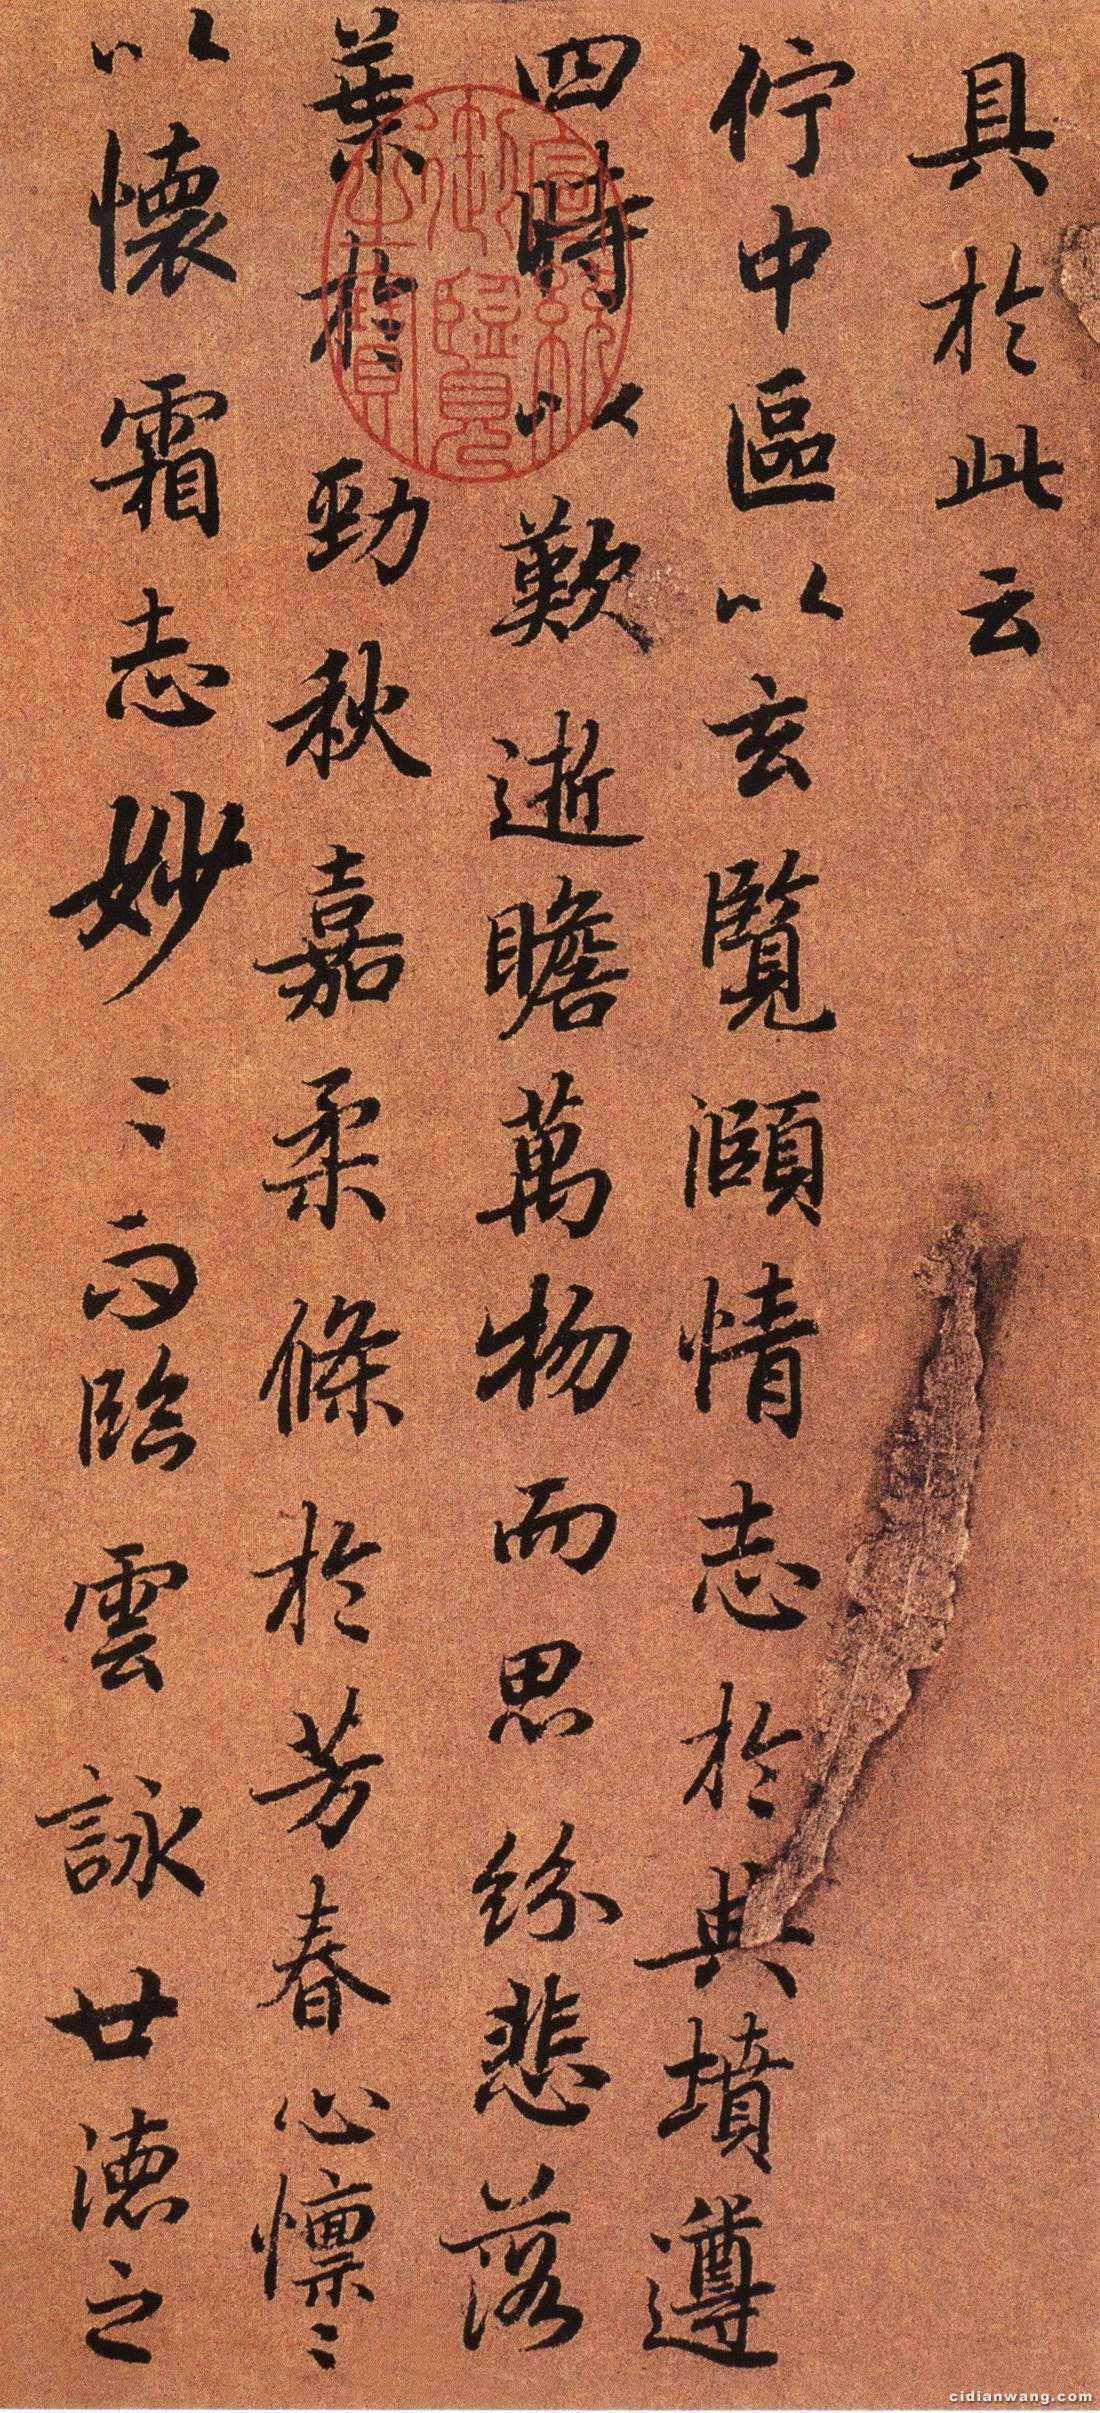 具於此云
佇中區以玄覽頤情志於典墳遵
四時以歎逝瞻萬物而思紛悲落
葉於勁秋嘉柔條於芳春心懍〻
以懷霜志妙〻而臨雲詠世德之
宣統御覽之寶
cidianwang.com